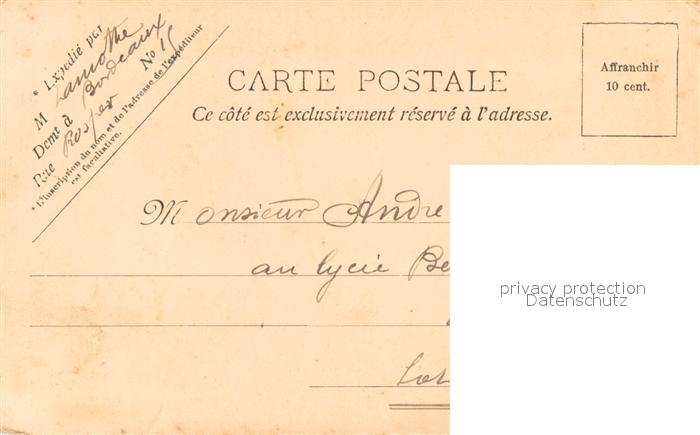 * Expédié par
M Lamothe
Demt à Bordeaux
Rue No 15
* L'inscription du nom et de l'adresse de l'expéditeur
est facultative.
CARTE POSTALE
Ce côté est exclusivement réservé à l'adresse.
Affranchir
10 cent.
Monsieur Andre
au lycée Be
Lot
privacy protection
Datenschutz